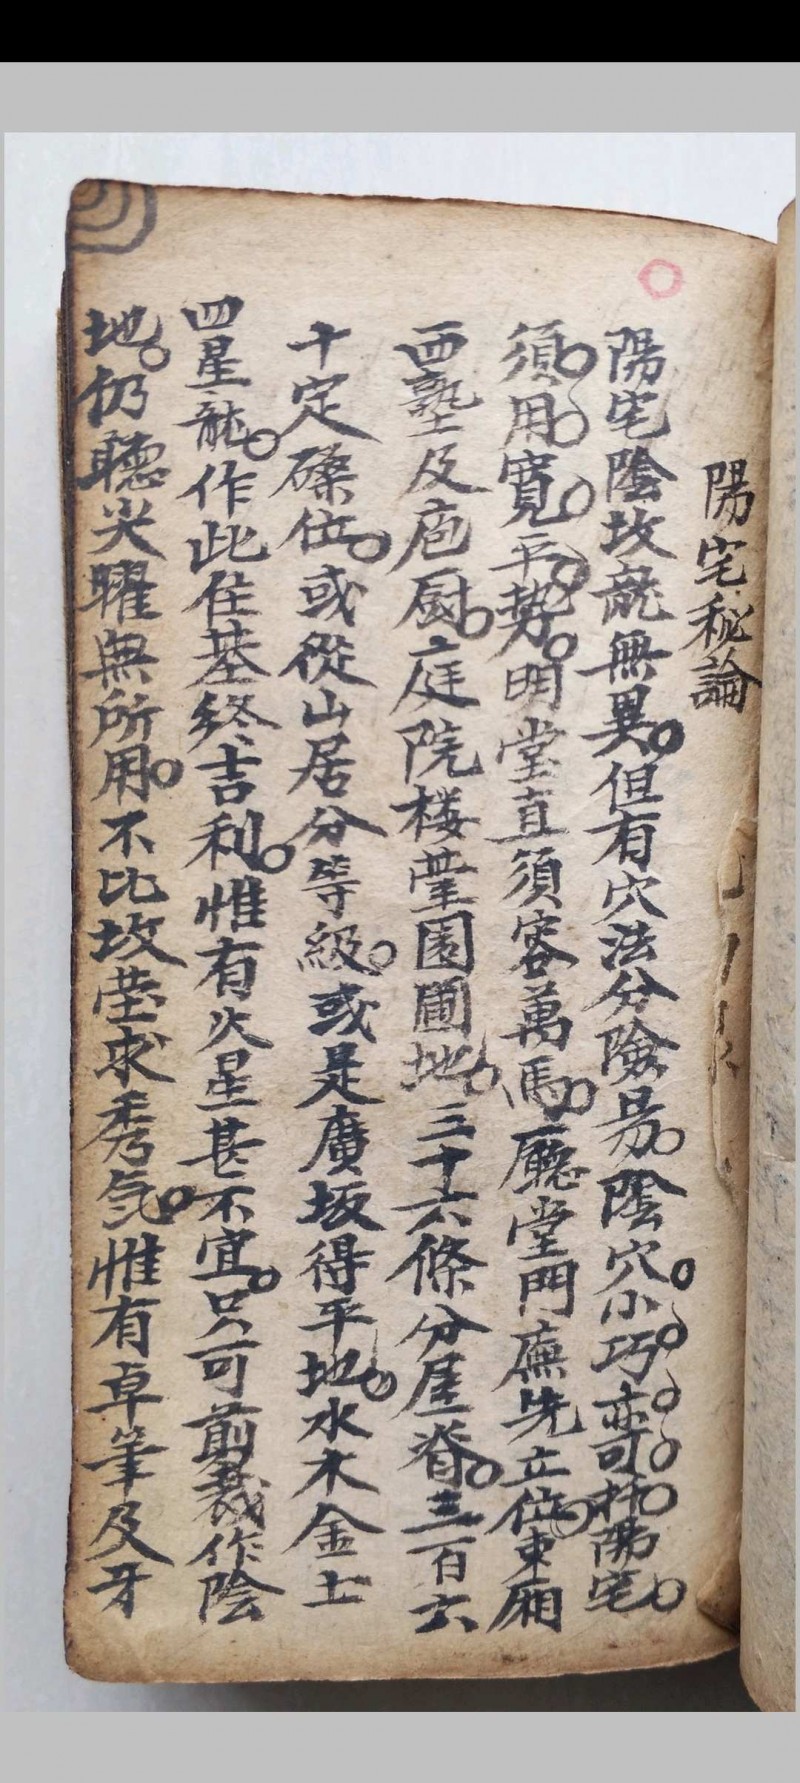 陽宅秘論
陽宅陰坟龍無異但有穴法分險易陰穴小巧亦可托陽宅
須用寬平勢明堂直須容萬馬廳堂門廡先立位東廂
西塾及庖厨庭院楼䑓園圃地三十六條分屋脊三百六
十定磉位或從山居分等級或是廣坂得平地水木金土
四星龍作此住基终吉利惟有火星甚不宜只可剪裁作陰
地仍聽尖曜無所用不比坟塋求秀気惟有卓筆及牙